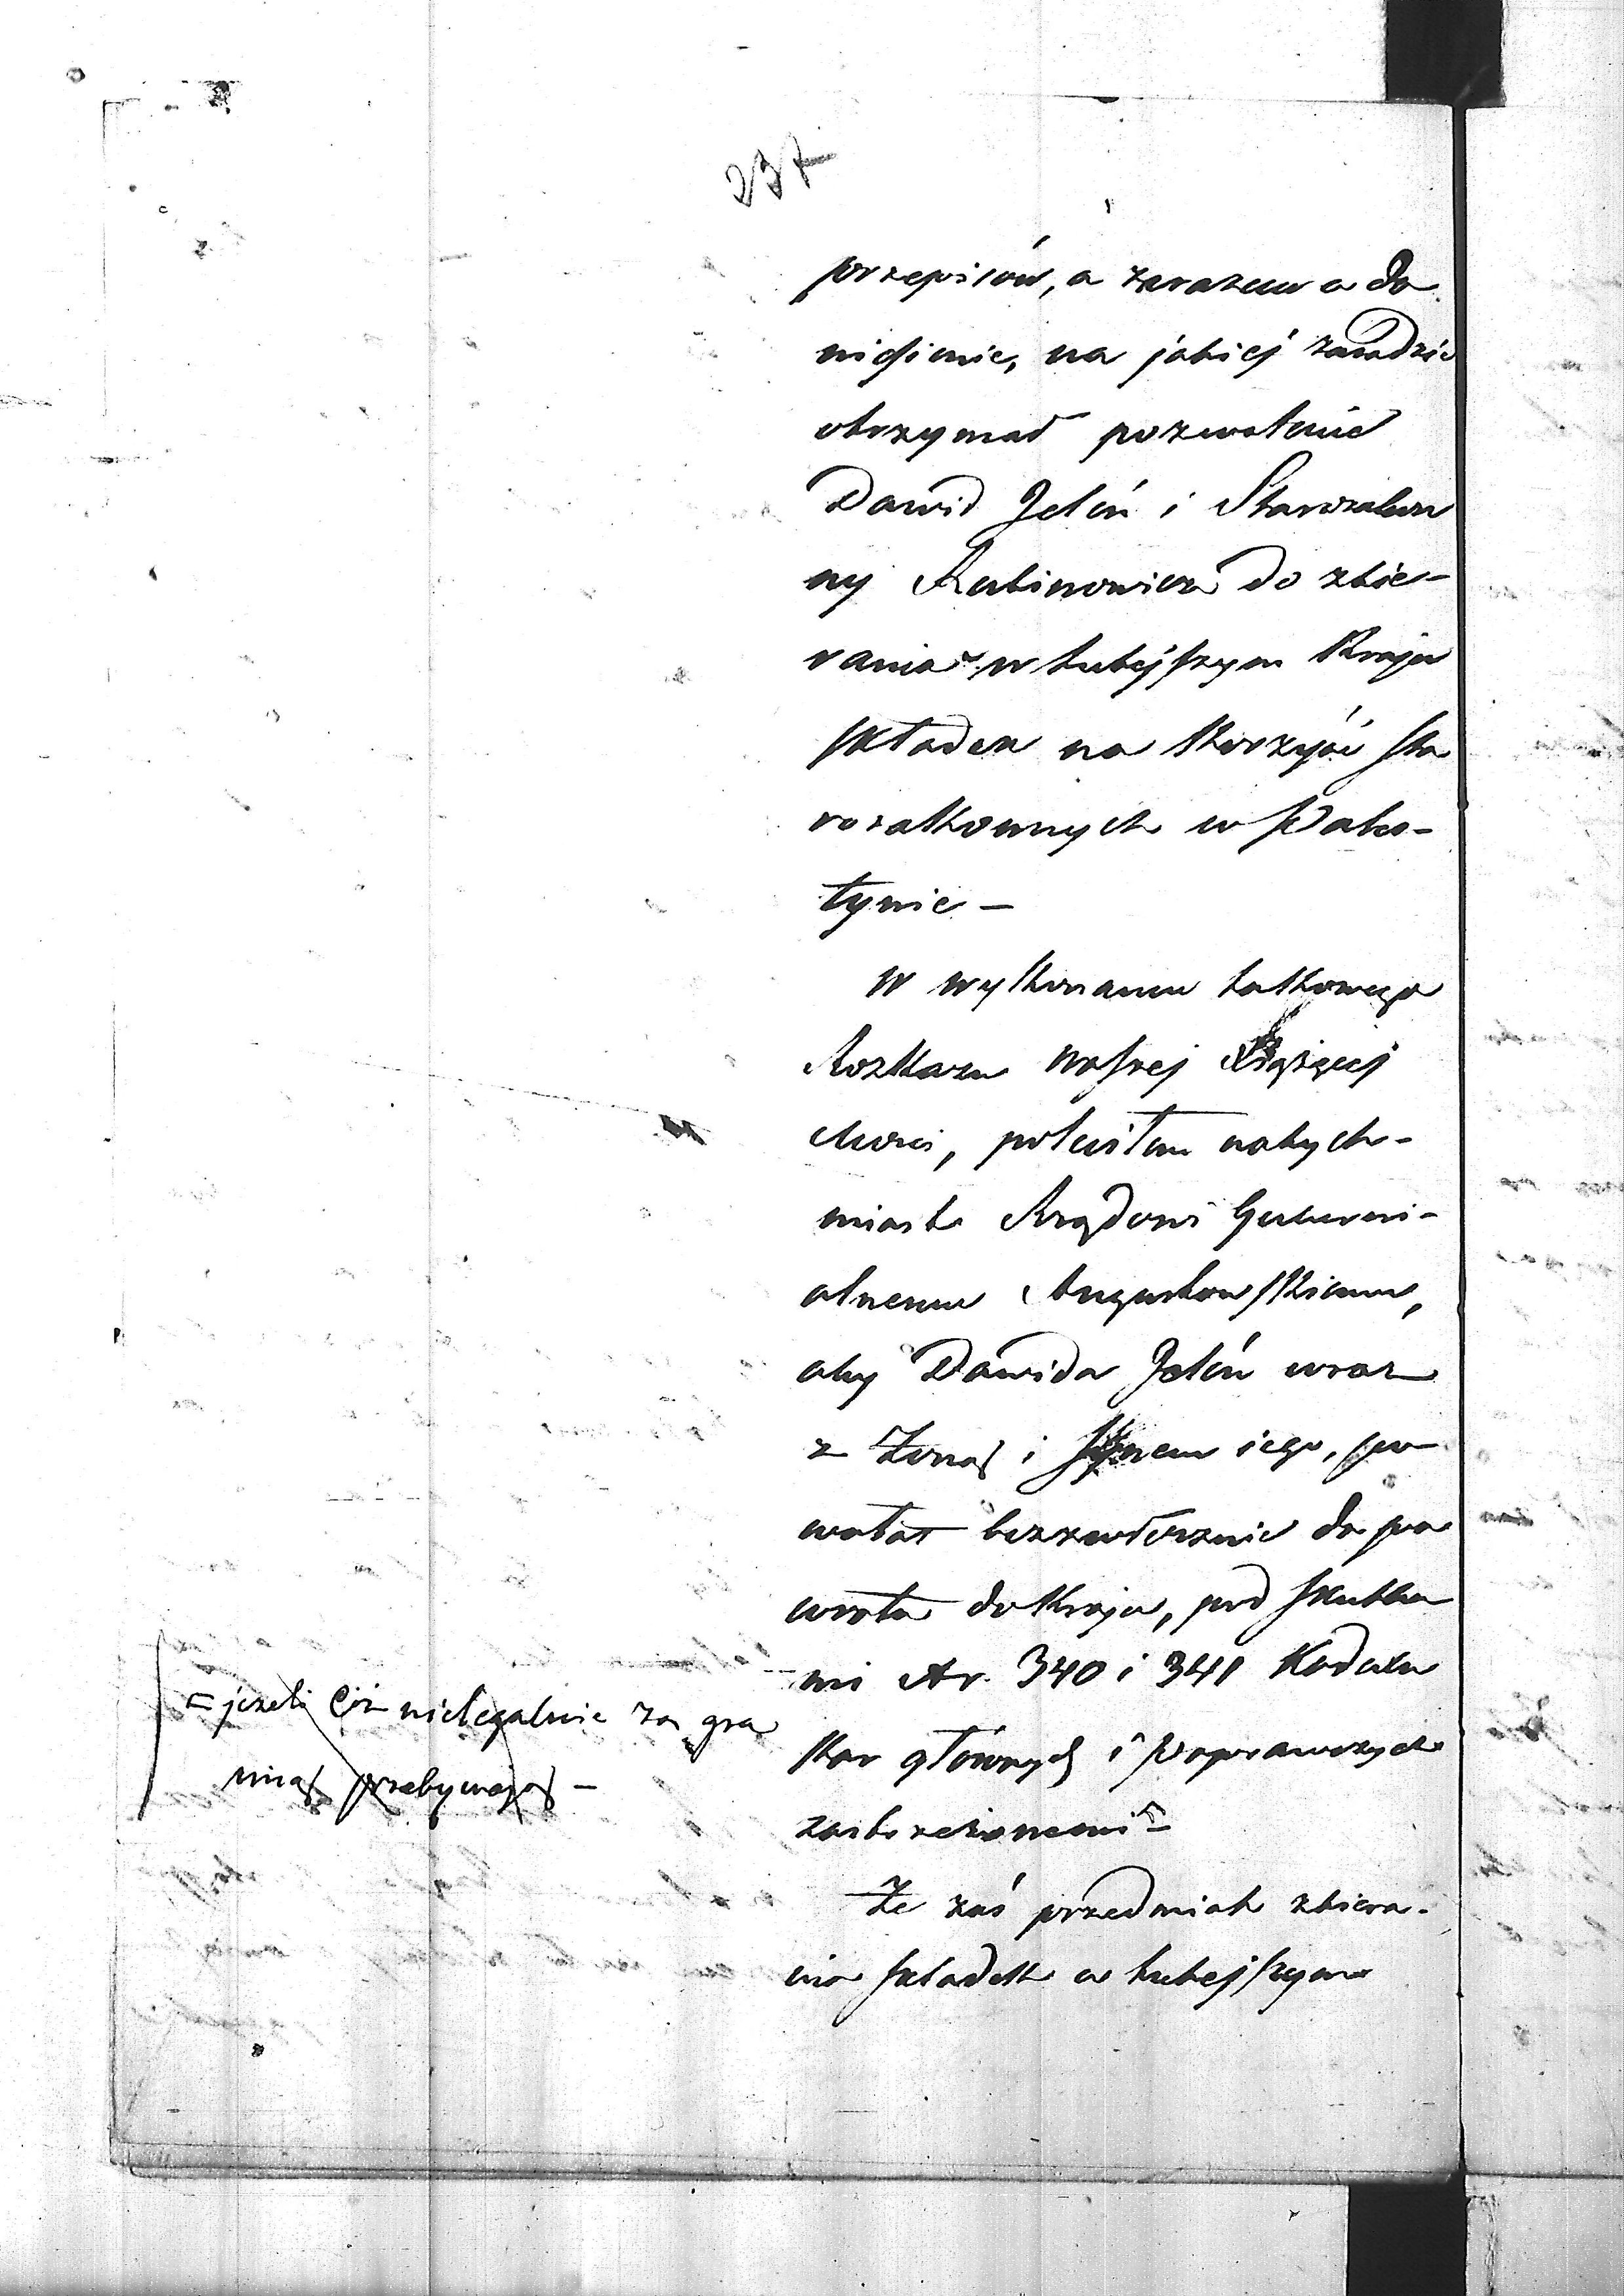 237
przepisów, a zarazem o do
niesienie, na jakiej zasadzie
otrzymał pozwolenie
Dawid Jeleń i Starozakon
ny Rubinowicz do zbie-
rania w tutejszym Kraju
składek na korzyść sta
rozakonnych w Pales-
tynie –
W wykonaniu takowego
Rozkazu Waszej Książęcej
Mości, poleciłem natych-
miast Rządowi Guberni-
alnemu Augustowskiemu,
aby Dawida Jeleń wraz
z Żoną i Synem jego, po
wołał bezzwłocznie do po
wrotu do Kraju, pod skutka
mi Ar. 340 i 341 Kodexu
Kar głównych i poprawczych
zastrzeżonemi =
= jeżeli Ciż nielegalnie za gra
nicą przebywają –
Że zaś przedmiot zbiera-
nia składek w tutejszym